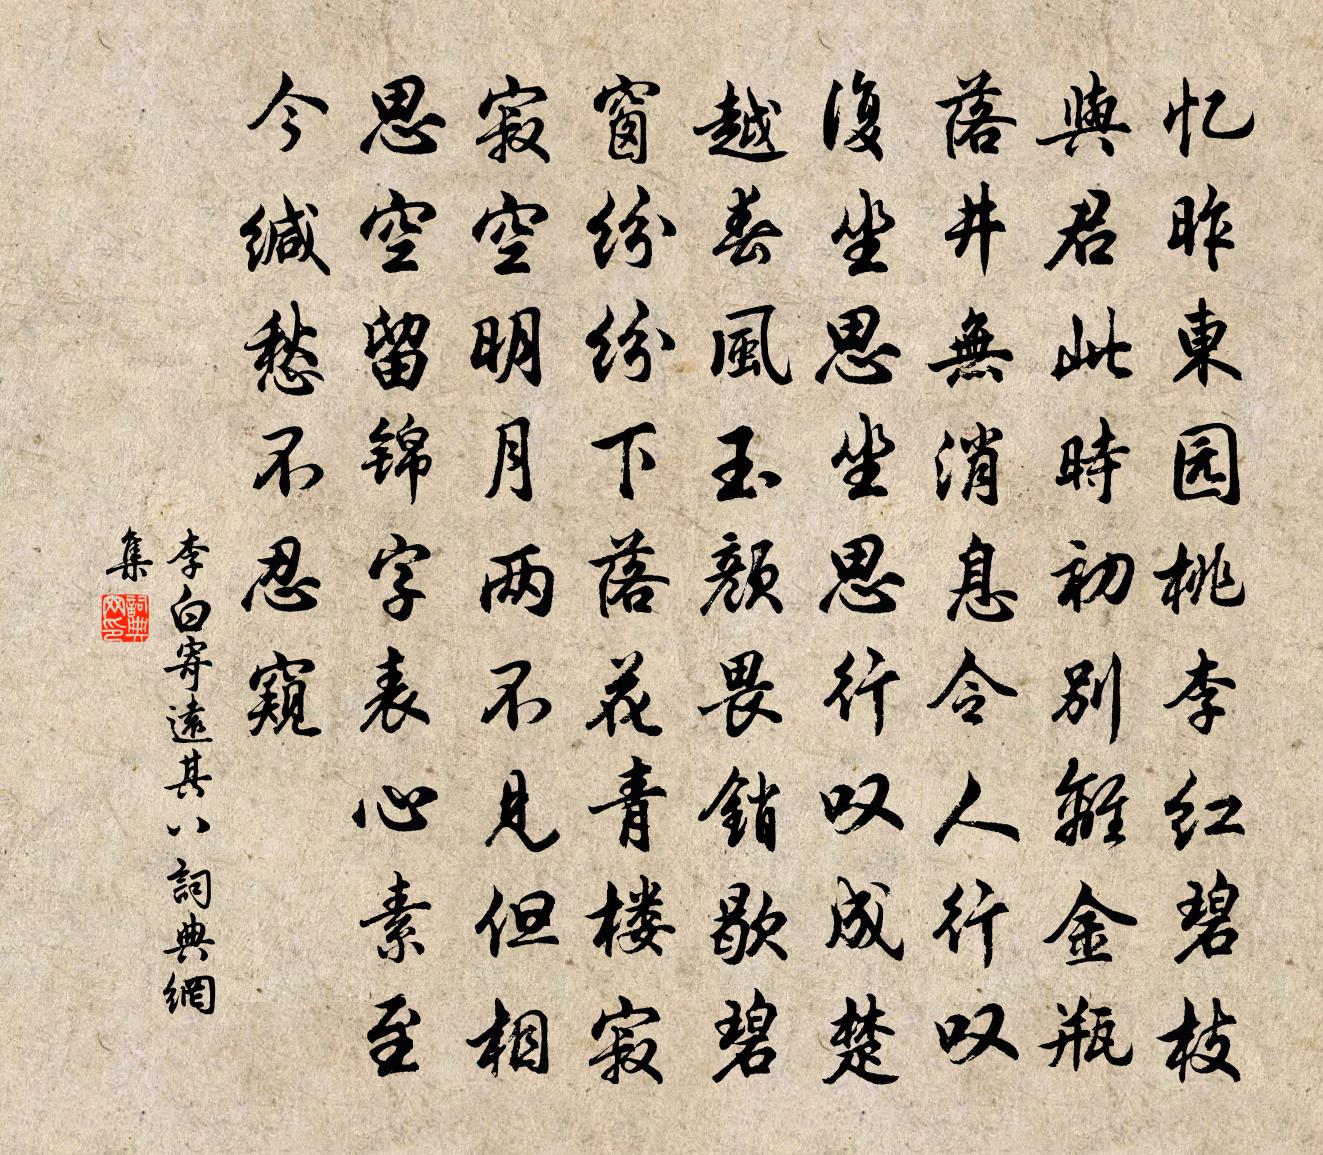 忆昨東园桃李红碧枝
與君此時初别離金瓶
落井無消息令人行叹
復坐思坐思行叹成楚
越春風玉顔畏銷歇碧
窗紛紛下落花青楼寂
寂空明月两不見但相
思空留锦字表心素至
今缄愁不忍窺
李白寄遠其八詞典網
集
詞典网印